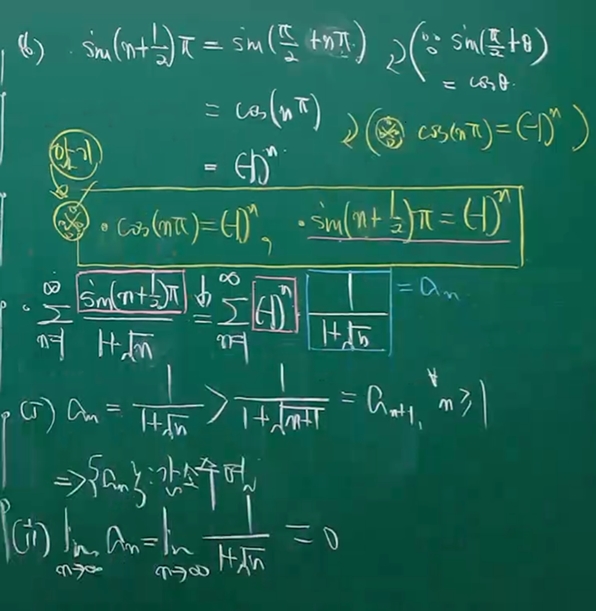 (6) sin(n+1/2)π = sin(π/2 + nπ) ↲ (∵ sin(π/2+θ)
= cosθ.
= cos(nπ) ↲ (※ cos(nπ)=(-1)^n)
암기 = (-1)^n
※ • cos(nπ)=(-1)^n, • sin(n+1/2)π = (-1)^n
• ∑_{n=1}^{∞} sin(n+1/2)π / (1+√n) = ∑_{n=1}^{∞} (-1)^n · 1/(1+√n) = a_n
(i) a_n = 1/(1+√n) > 1/(1+√(n+1)) = a_{n+1}, ∀n≥1
=> {a_n} : 감소수열
(ii) lim_{n→∞} a_n = lim_{n→∞} 1/(1+√n) = 0